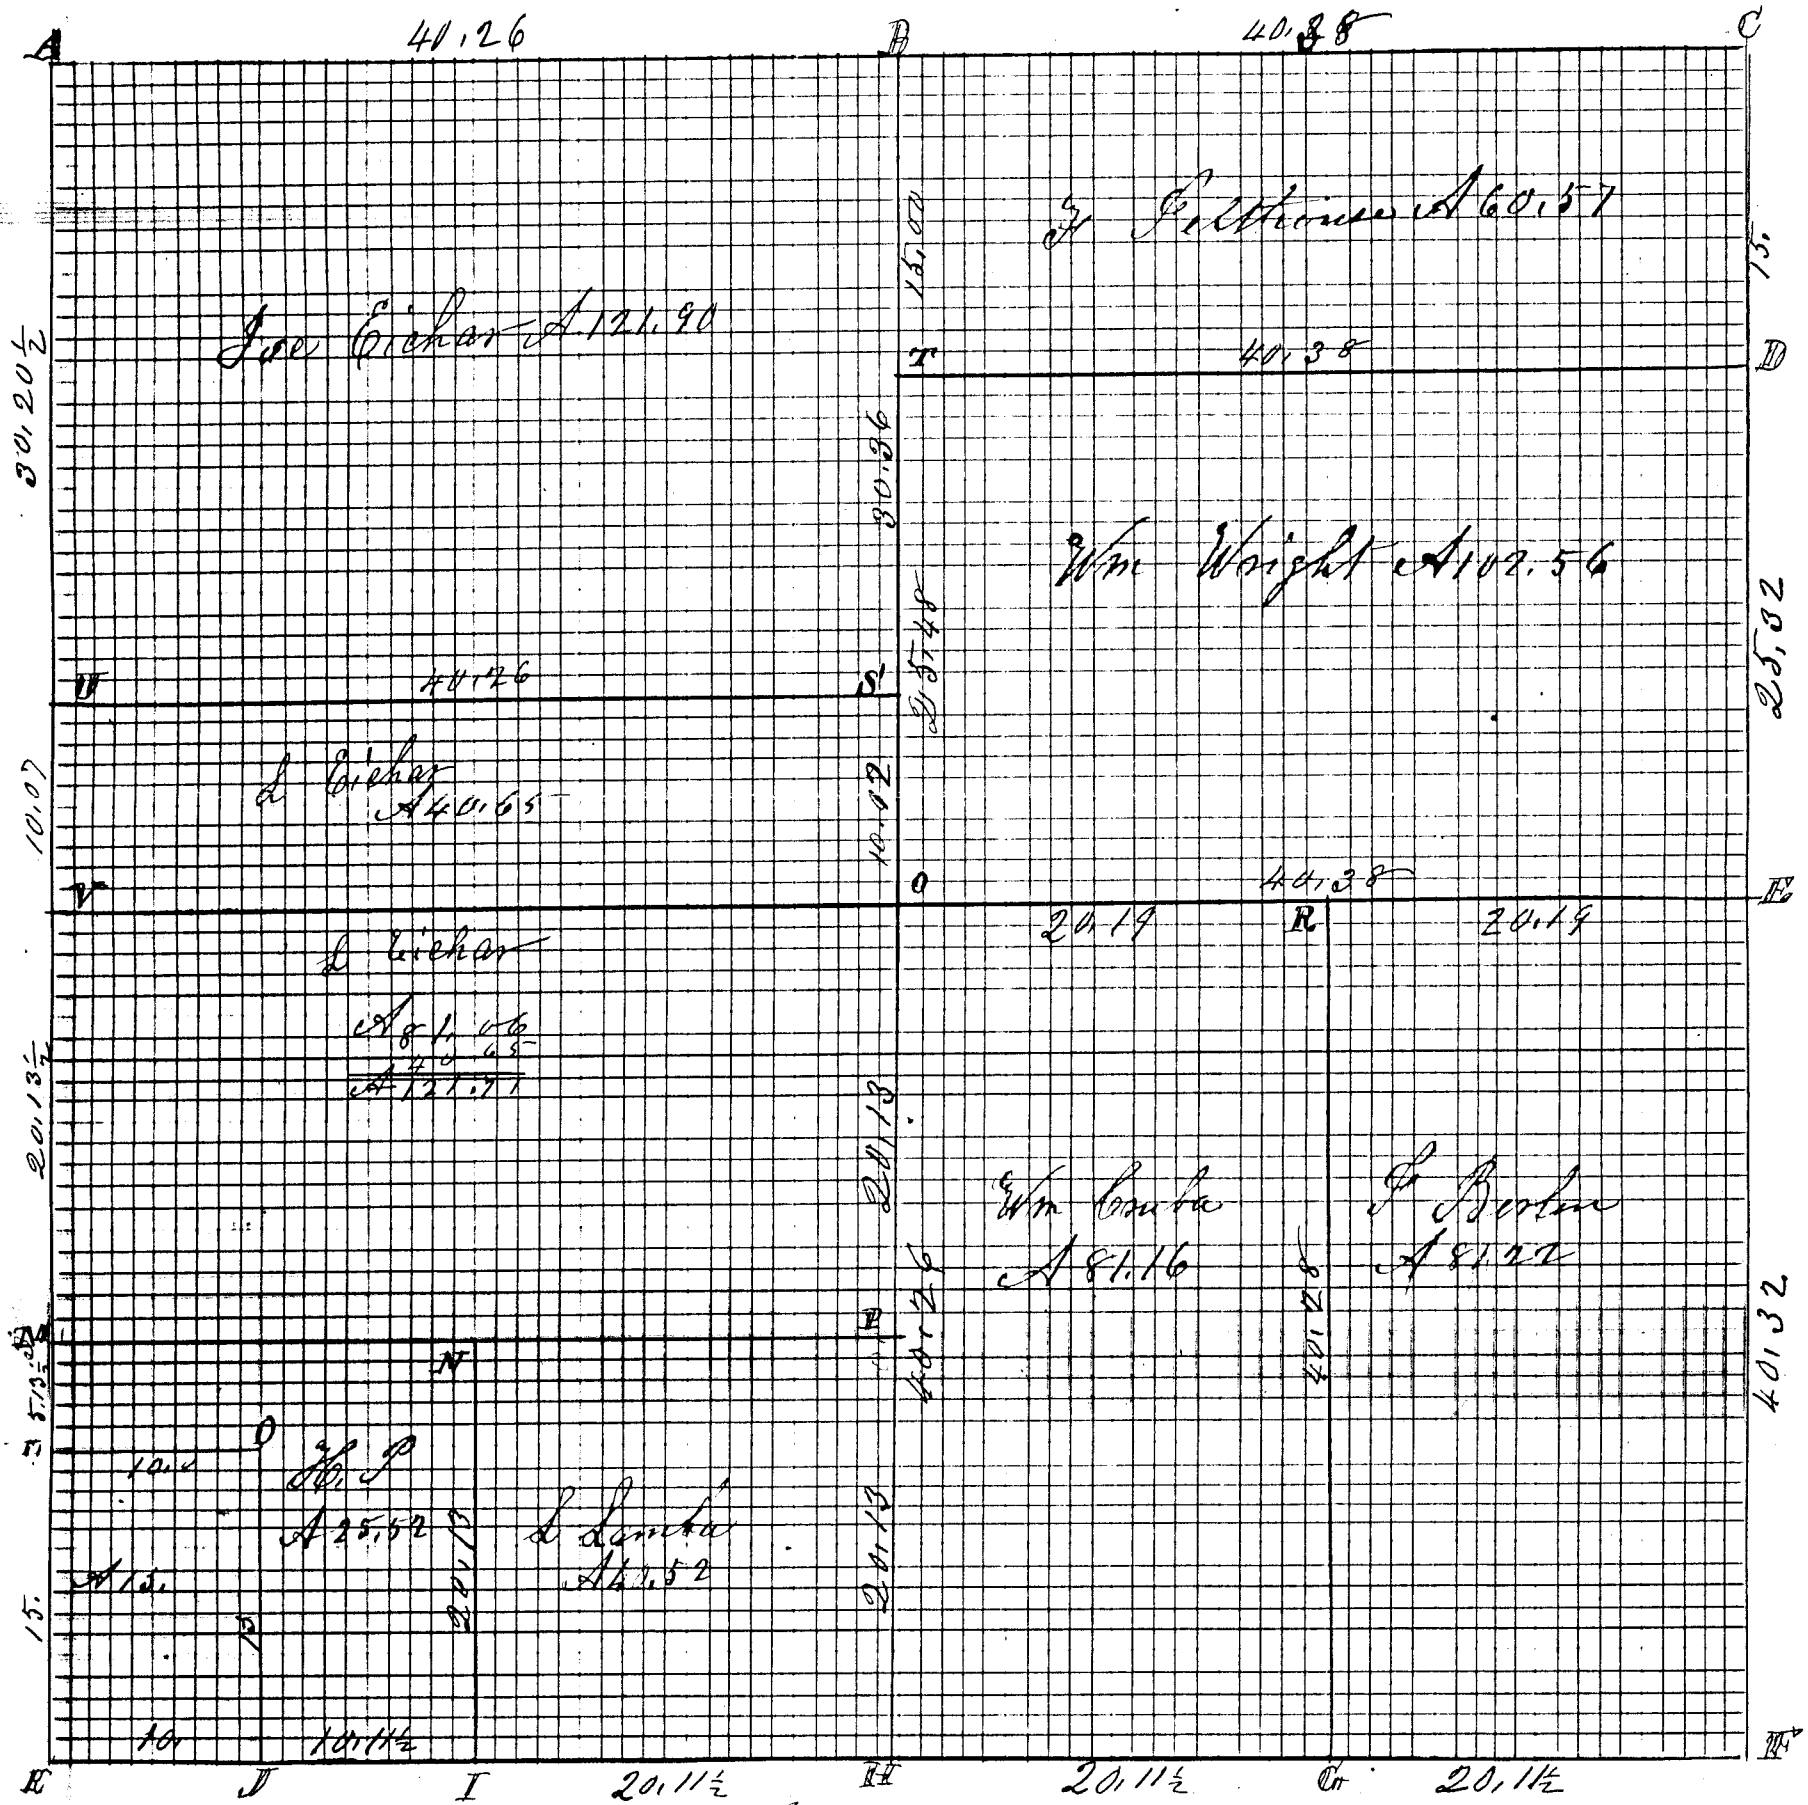 A 40.26 B 40.38 C
15.00
15.
A 60.57
Joe Eichar A 121.90
30.20½
T 40.38 D
30.36
Wm Wright A 102.56
25.48
25,32
U 40.26 S
L Eichar
A 40.65
10.07
10.12
V O 40,38 E
20.19 R 20.19
L Eichar
A 81.06
40.65
A 121.71
20.13½
20.13
Wm
A 81.16
F Berlin
A 81.22
40.26
40.28
40,32
N
5.13½
O
10.
H. P
A 25.52
20.13
L
A 40.52
20.13
A 15.
15.
15
10. 10.11½
K J I 20.11½ H 20.11½ G 20.11½ F